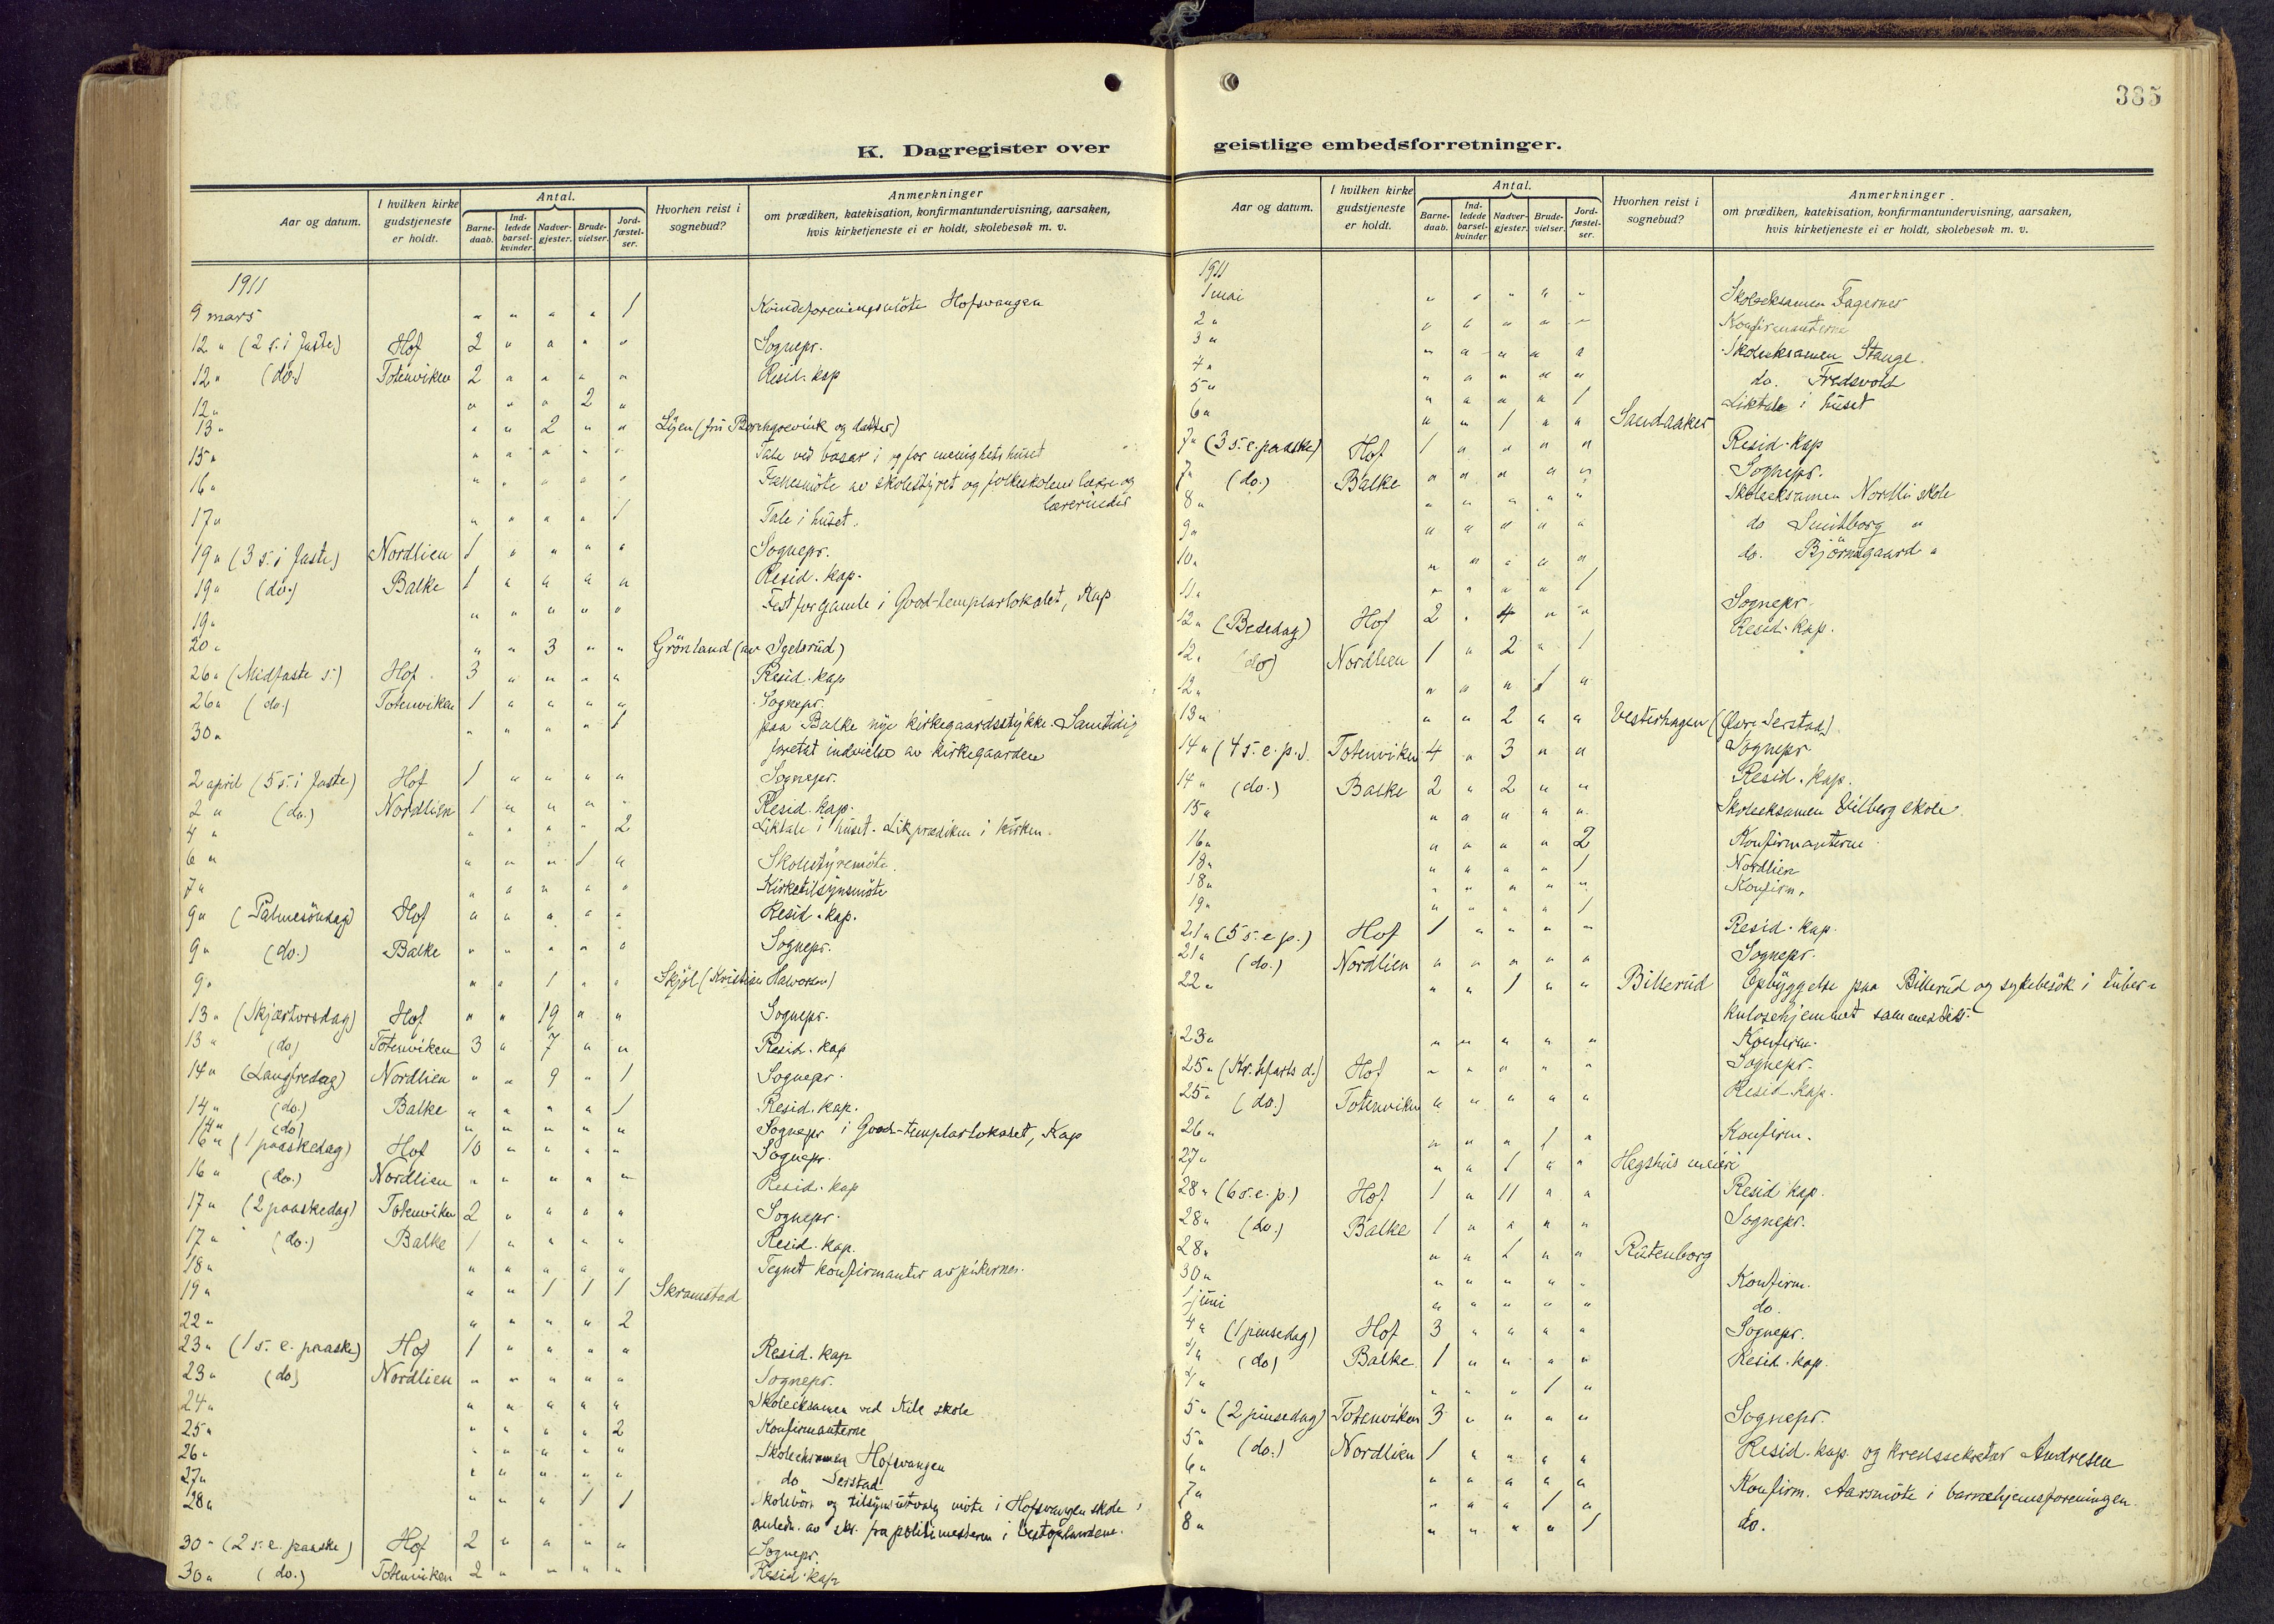 385
K. Dagregister over geistlige embedsforretninger.
Aar og datum. I hvilken kirke gudstjeneste er holdt. Antal. Barne-daab. Ind-ledede barsel-kvinder. Nadver-gjester. Brude-vielser. Jord-fæstel-ser. Hvorhen reist i sognebud? Anmerkninger om prædiken, katekisation, konfirmantundervisning, aarsaken, hvis kirketjeneste ei er holdt, skolebesøk m. v.
1911
9 mars " " " " 1 Kvindeforeningsmöte Hofsvangen
12 " (2 s. i faste) Hof 2 " " " " Sognepr.
12 " (do.) Totenviken 2 " " " " Resid. kap
12 " " " " 2 "
13 " " " 2 " " (fru Borchgrevink og datter)
15 " " " " " " Tale ved basar i og for menighetshuset
16 " " " " " " Fællesmöte av skolestyret og folkeskolens lærere og
lærerinder
17 " " " " " 1 Tale i huset.
19 " (3 s. i faste) Nordlien 1 " " " " Sognepr.
19 " (do.) Balke 1 " " " " Resid. kap.
19 " " " " " " Fest for gamle i Good-templarlokalet, Kap
20 " " " 3 " " Grönland (av Igelsrud)
26 " (Midfaste s.) Hof 3 " " " " Resid. kap
26 " (do.) Totenviken 1 " " " " Sognepr.
30 " " " " " 1 paa Balke nye kirkegaardsstykke. Samtidig
foretat indvielse av kirkegaarden
2 april (5 s. i faste) Hof 1 " " " " Sognepr.
2 " (do.) Nordlien 1 " " " " Resid. kap.
4 " " " " " 2 Liktale i huset. Likprædiken i kirken.
6 " " " " 1 " Skolestyremöte.
7 " " " " " " Kirketilsynsmöte
9 " (Palmesöndag) Hof " " " " " Resid. kap.
9 " (do.) Balke " " " " " Sognepr.
9 " " " 1 " " Skjöl (Kristian Halvorsen)
13 " (Skjærtorsdag) Hof " " 19 " " Sognepr.
13 " (do) Totenviken 3 " 7 " " Resid. kap
14 " (Langfredag) Nordlien " " 9 " 1 Sognepr.
14 " (do.) Balke " " " " 1 Resid. kap.
14 " (do) " " " " " Sognepr i Good-templarlokalet, Kap
16 " (1 paaskedag) Hof 10 " " " " Sognepr.
16 " (do.) Nordlien " " " " " Resid. kap
17 " (2 paaskedag) Totenviken 2 " " " " Sognepr.
17 " (do.) Balke 1 " " " " Resid. kap.
18 " " " " " " Tegnet konfirmanter av pikerne.
19 " " " 1 1 1 Skramstad
22 " " " " " 2
23 " (1 s. e. paaske) Hof 1 " " " " Resid. kap
23 " (do) Nordlien " " " " " Sognepr.
24 " " " " " " Skoleeksamen ved Kile skole
25 " " " " " 2 Konfirmanterne
26 " " " " " " Skoleeksamen Hofsvangen
27 " " " " " " do Seristad
28 " " " " 1 1 Skolebörn og tilsynsutvalg möte i Hofsvangen skole i
anledn. av skr. fra politimesteren i Vestoplandene.
30 " (2 s. e. paaske) Hof 2 " " " " Sognepr.
30 " (do.) Totenviken 2 " " " " Resid. kap
Aar og datum. I hvilken kirke gudstjeneste er holdt. Antal. Barne-daab. Ind-ledede barsel-kvinder Nadver-gjester. Brude-vielser. Jord-fæstel-ser. Hvorhen reist i sognebud? Anmerkninger. om prædiken, katekisation, konfirmantundervisning, aarsaken, hvis kirketjeneste ei er holdt, skolebesøk m. v.
1911
1 mai " " " " " Skoleeksamen Fagernes
2 " " " " " " Konfirmanterne
3 " " " " " " Skoleeksamen Stange
4 " " " " " " do. Fredsvold
5 " " " " " 1 Liktale i huset
6 " " " 1 " " Sandaaker
7 " (3 s. e. paaske) Hof 1 " " " " Resid. kap
7 " (do.) Balke " " " " " Sognepr.
8 " " " " " " Skoleeksamen Nordli skole
9 " " " " " " do Smithborg "
10 " " " " " " do. Björnsgaard "
11 " " " " " 1
12 " (Bededag) Hof 2 " 4 " " Sognepr
12 " (do) Nordlien 1 " 2 " 1 Resid. kap.
12 " " " " 1 "
13 " " " 2 " " Vesterhagen
14 " (4 s. e. p.) Totenviken 4 " 3 " " Sognepr
14 " (do.) Balke 2 " 2 " " Resid. kap.
15 " " " " " " Skoleeksamen Eilberg skole
16 " " " " " 2 Konfirmanterne
18 " " " " " 1 Nordlien
18 " " " " " " Konfirm.
19 " " " " " 1
21 " (5 s. e p.) Hof 1 " " " " Resid. kap.
21 " (do.) Nordlien " " " " " Sognepr.
22 " " " 1 " " Billerud Opbyggelse paa Billerud og sykebesök i tuber-
kulosehjemmet sammesteds.
23 " " " " " " Konfirm.
25 " (Kr. hfarts d.) Hof " " " " " Sognepr.
25 " (do.) Totenviken " " " " " Resid. kap.
26 " " " " 1 " Konfirm.
27 " " " 1 " " Hegshus meieri
28 " (6 s. e. p.) Hof 1 " 11 " " Resid kap.
28 " (do.) Balke 1 " " " " Sognepr.
28 " " " 1 " " Rutenborg
30 " " " " " " Konfirm.
1 juni " " " " " do.
4 " (1 pinsedag) Hof 3 " " " " Sognepr.
4 " (do) Balke 1 " " " " Resid. kap.
4 " " " " 1 "
5 " (2 pinsedag) Totenviken 3 " " " " Sognepr.
5 " (do.) Nordlien 1 " " " " Resid. kap. og kredssekretær Andresen
6 " " " " " "
7 " " " " 1 " Konfirm. Aarsmöte i barnehjemsforeningen.
8 " " " " " 1 do.